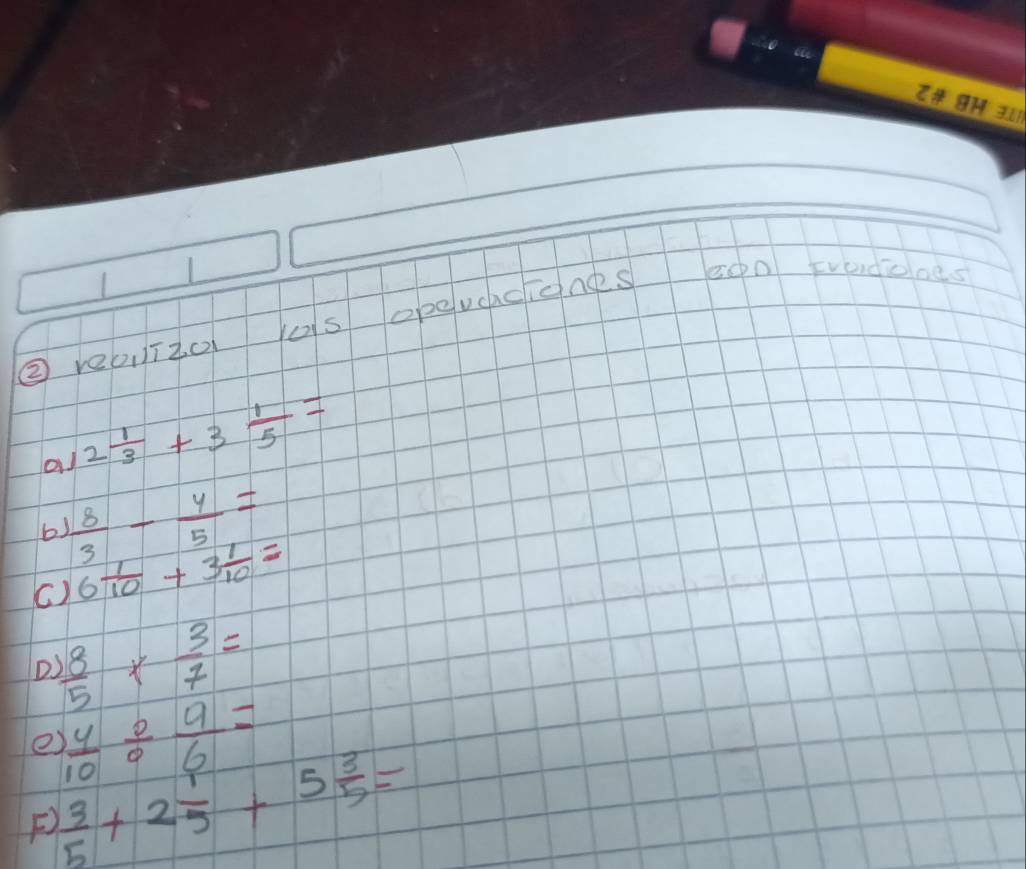 ITE HB #2
② realiza las operaciones con fracciones
a) 2 1/3 + 3 1/5 =
b) 8/3 - 4/5 =
c) 6 1/10 + 3 1/10 =
D) 8/5 × 3/7 =
e) 4/10 ÷ 9/6 =
F) 3/5 + 2 1/5 + 5 3/5 =